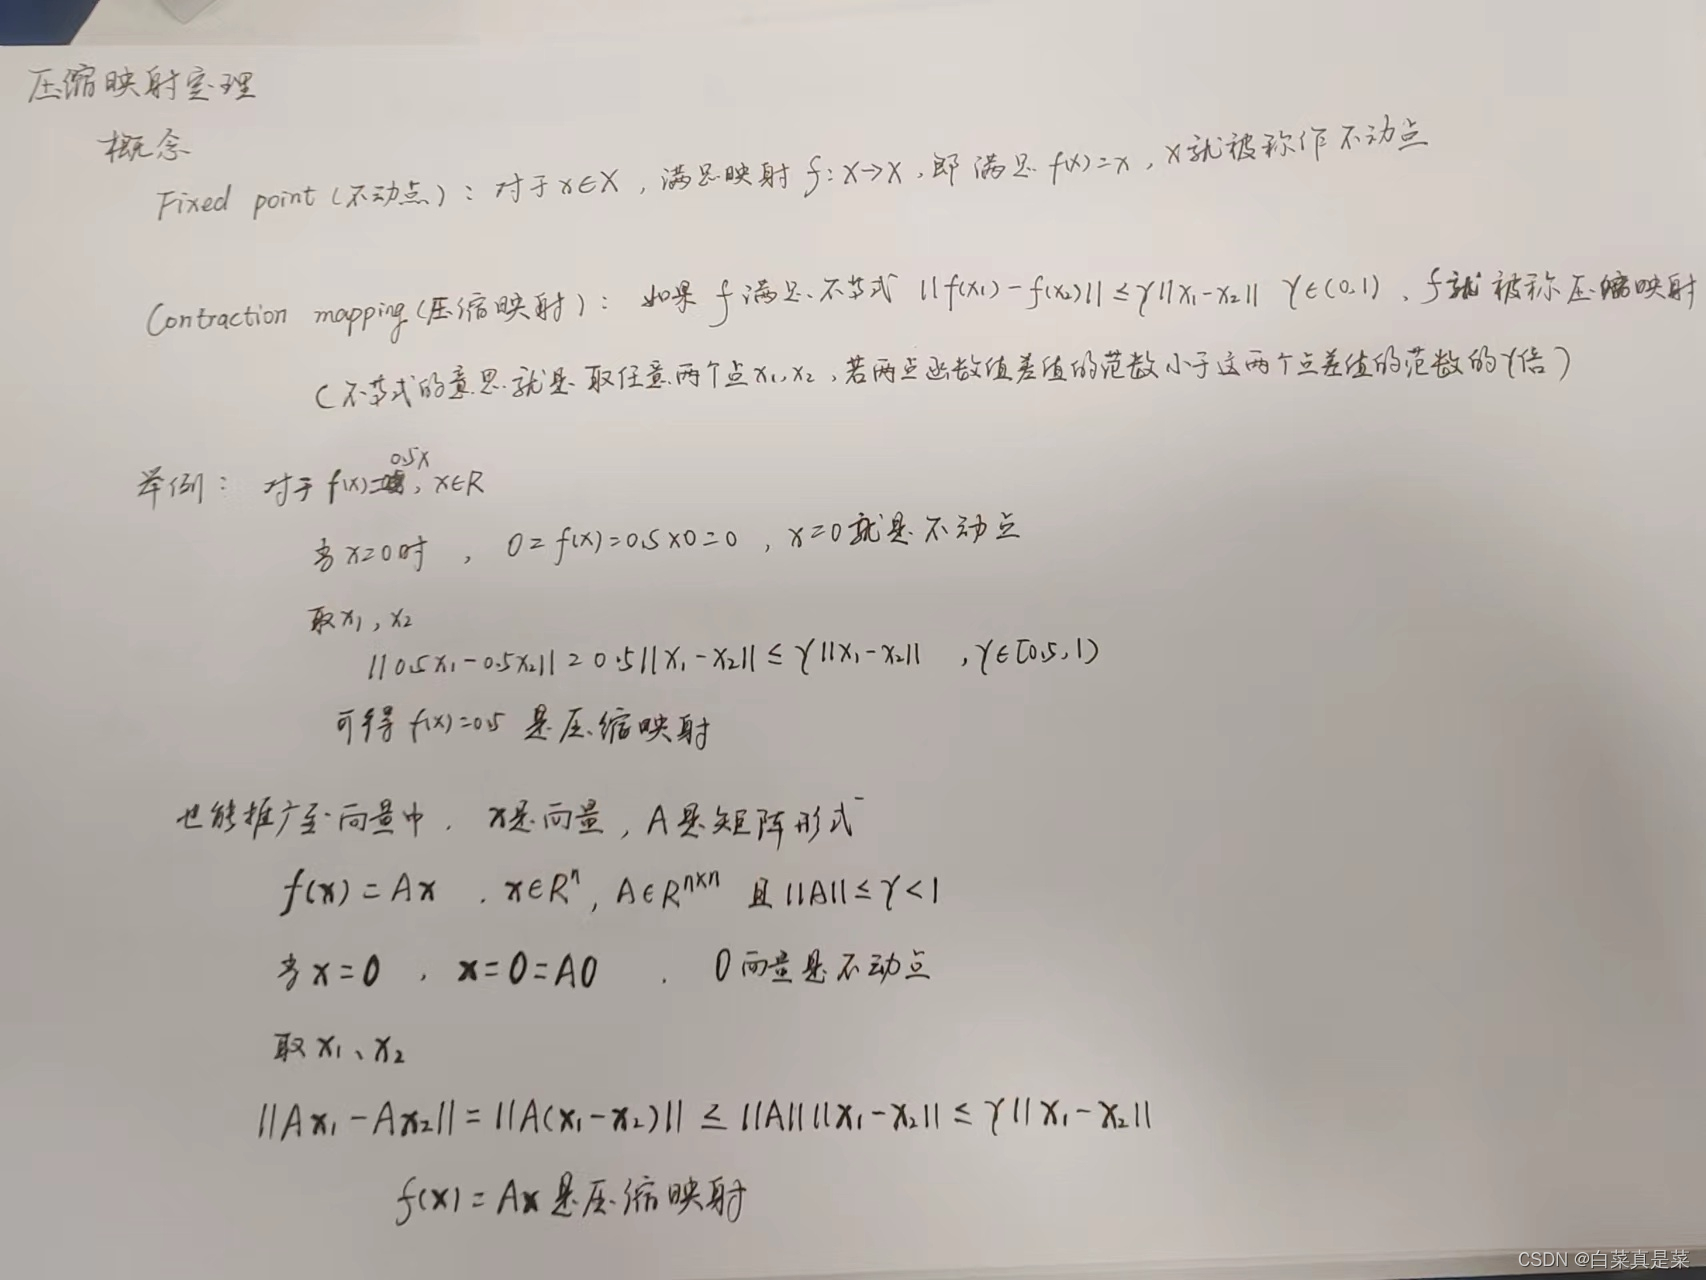 压缩映射定理
概念
Fixed point(不动点):对于x∈X,满足映射f:X→X,即满足f(x)=x,x就被称作不动点
Contraction mapping(压缩映射):如果f满足不等式||f(x₁)-f(x₂)||≤γ||x₁-x₂|| γ∈(0,1),f就被称压缩映射
(不等式的意思就是取任意两个点x₁,x₂,若两点函数值差值的范数小于这两个点差值的范数的γ倍)
举例:对于f(x)=0.5x,x∈R
当x=0时,0=f(x)=0.5×0=0,x=0就是不动点
取x₁,x₂
||0.5x₁-0.5x₂||=0.5||x₁-x₂||≤γ||x₁-x₂||,γ∈[0.5,1)
可得f(x)=0.5是压缩映射
也能推广至向量中.x是向量,A是矩阵形式
f(x)=Ax.x∈Rⁿ,A∈Rⁿˣⁿ且||A||≤γ<1
当x=0,x=0=A0.0向量是不动点
取x₁、x₂
||Ax₁-Ax₂||=||A(x₁-x₂)||≤||A||||x₁-x₂||≤γ||x₁-x₂||
f(x)=Ax是压缩映射
CSDN @白菜真是菜